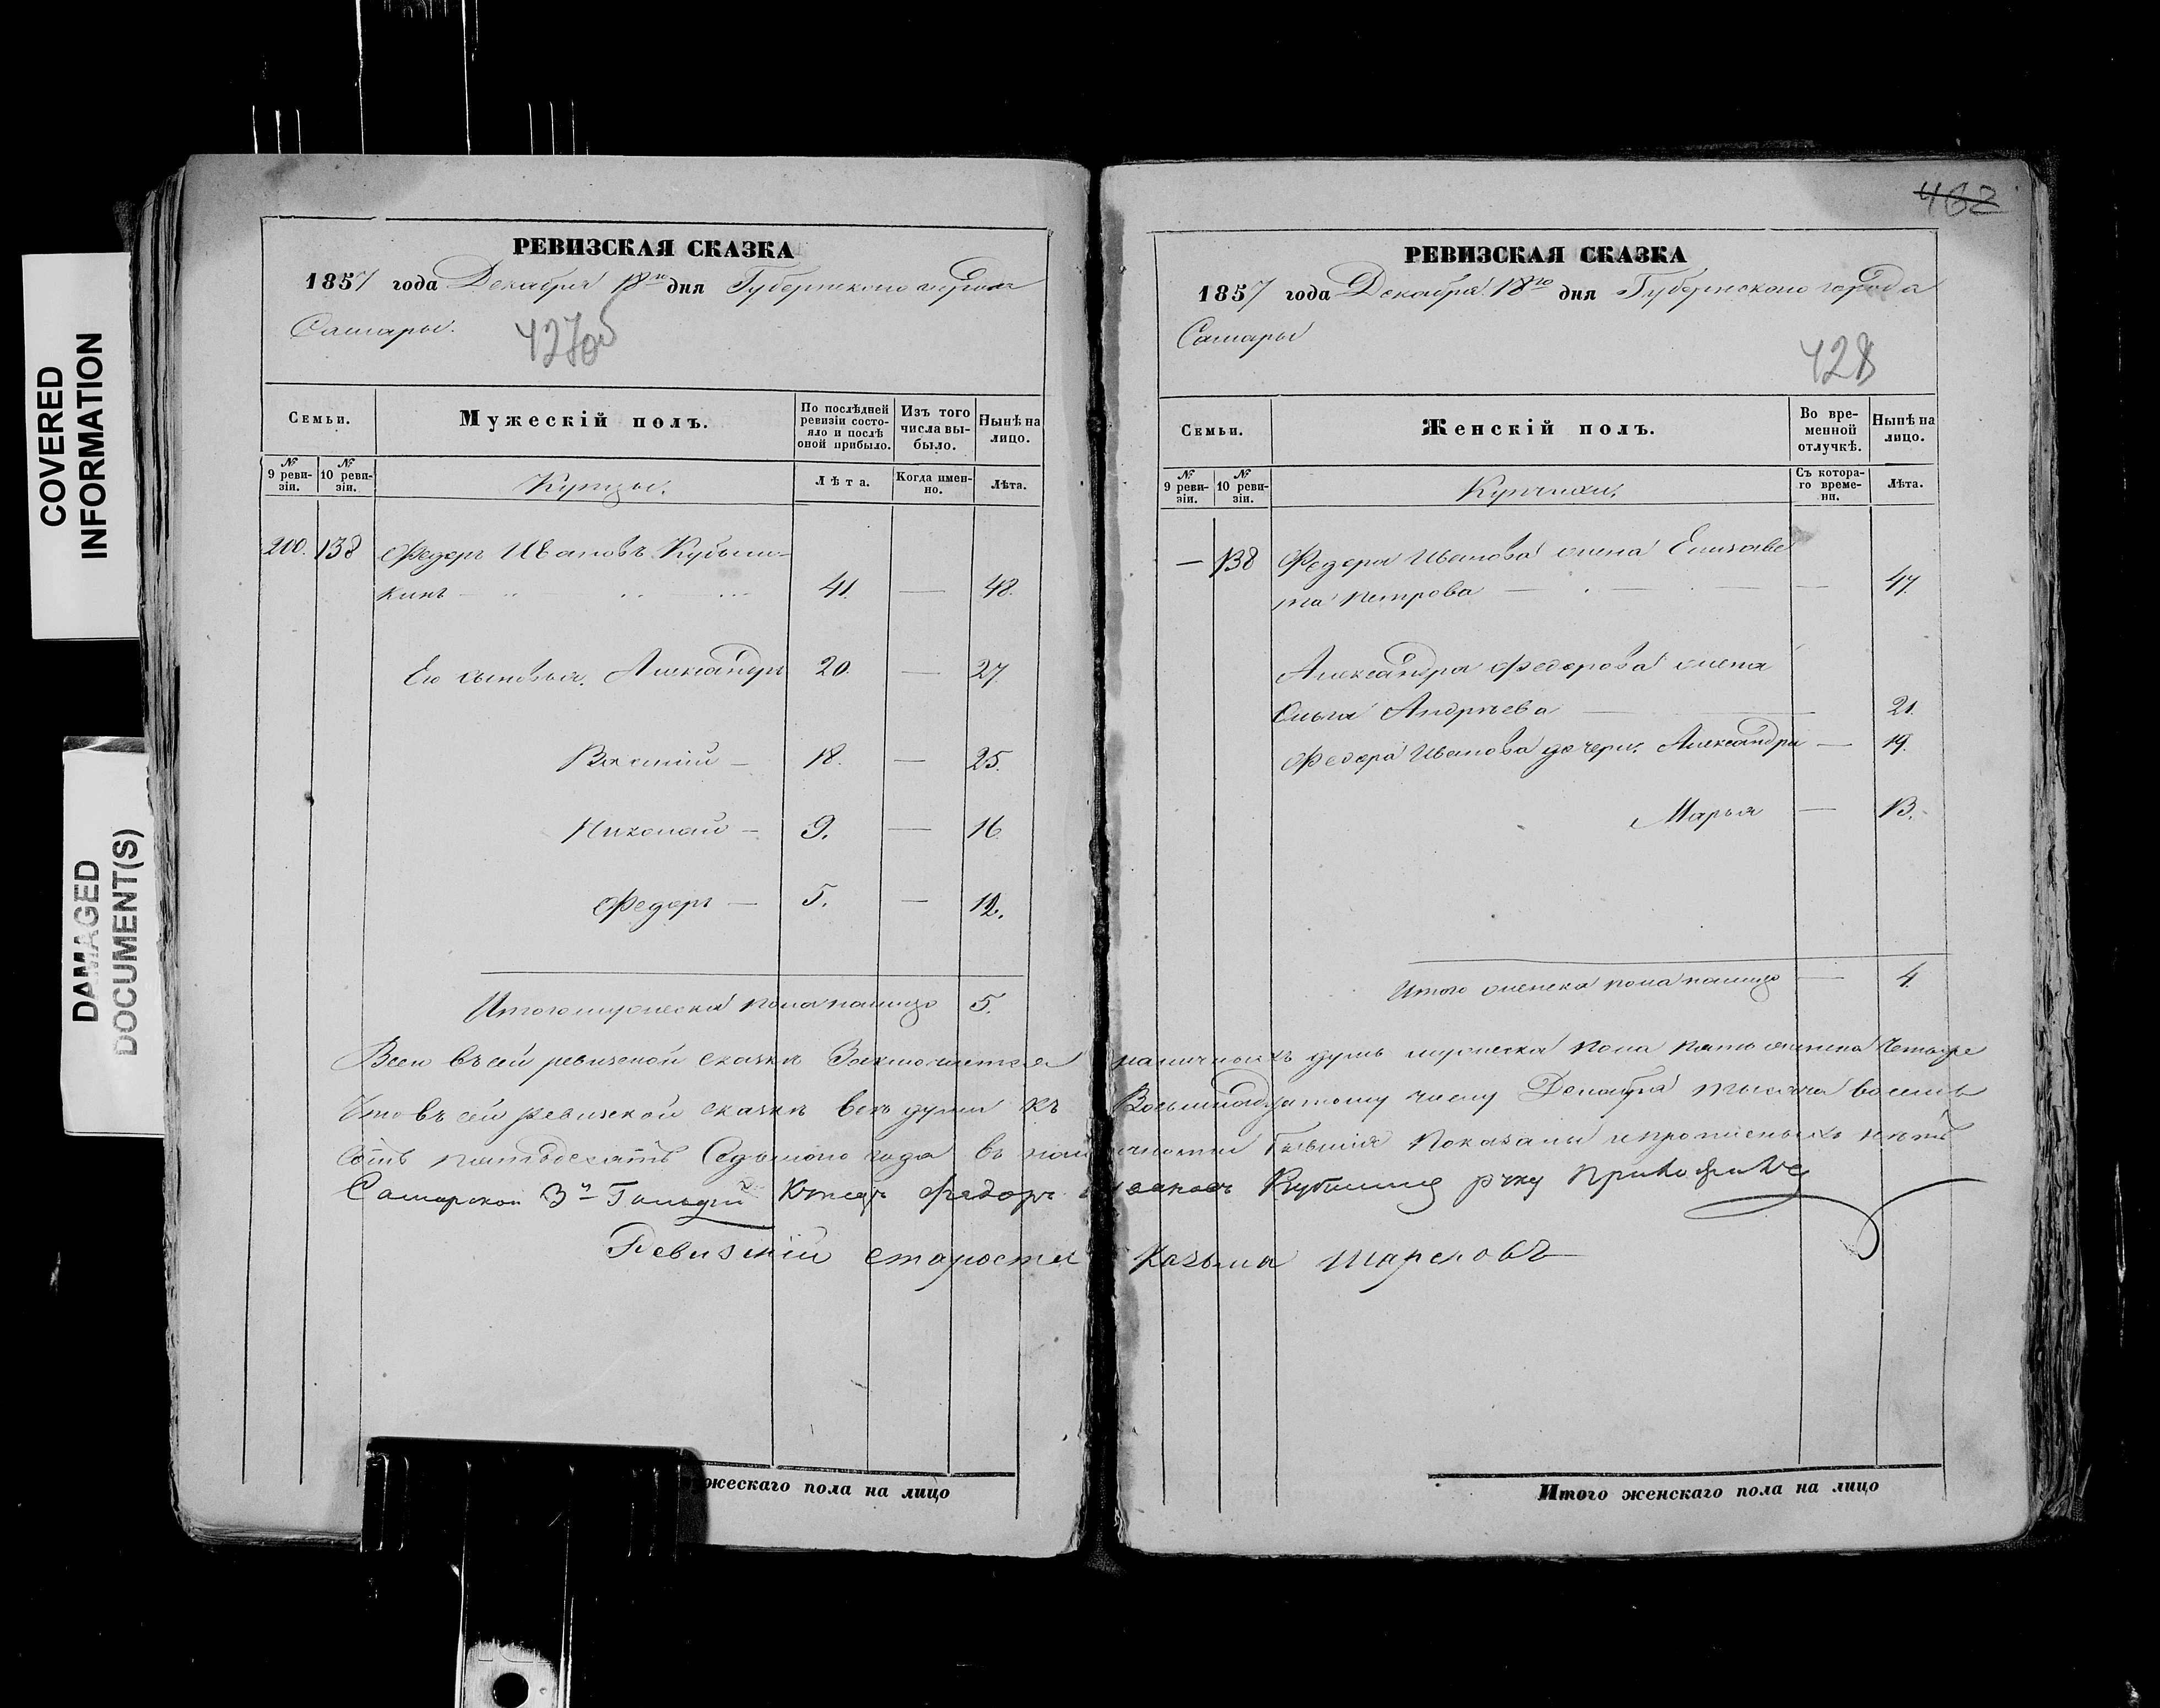 COVERED
INFORMATION
DAMAGED
DOCUMENT(S)
РЕВИЗСКАЯ СКАЗКА
1857 года Декабря 18го дня Губернскаго города
Самары.
427об
Семьи.
Мужескій полъ.
По послѣдней ревизіи состояло и послѣ оной прибыло.
Изъ того числа выбыло.
Нынѣ на лицо.
№ 9 ревизіи.
№ 10 ревизіи.
Купцы.
Лѣта.
Когда именно.
Лѣта.
200. 138 Федоръ Ивановъ Кубыш-
кинъ 41. — 48.
Его сыновья. Александръ 20. — 27.
Василій — 18. — 25.
Николай — 9. — 16.
Федоръ — 5. — 12.
Итого мужеска пола на лицо 5.
462
РЕВИЗСКАЯ СКАЗКА
1857 года Декабря 18го дня Губернскаго города
Самары
428
Семьи.
Женскій полъ.
Во временной отлучкѣ.
Нынѣ на лицо.
№ 9 ревизіи.
№ 10 ревизіи.
Купчихи.
Съ котораго времени.
Лѣта.
— 138 Федора Иванова жена Елизаве
та Петрова — 47.
Александра Федорова жена
Ольга Андреева — 21.
Федора Иванова дочери. Александра — 19.
Марья — 13.
Итого женска пола на лицо — 4.
Всего въ сей ревизской сказкѣ Заключается наличныхъ душъ мужеска пола пять женска Четыре
Что въ сей ревизской сказкѣ всѣ души къ Восьмнадцатому числу Декабря тысяча восемь
сотъ пятьдесятъ Седьмого года въ наличности бывшія Показаны и прописныхъ нѣтъ
Самарской 3й Гильдіи Купецъ Федоръ Ивановъ руку приложилъ
Ревизскій староста Козьма
жескаго пола на лицо
Итого женскаго пола на лицо